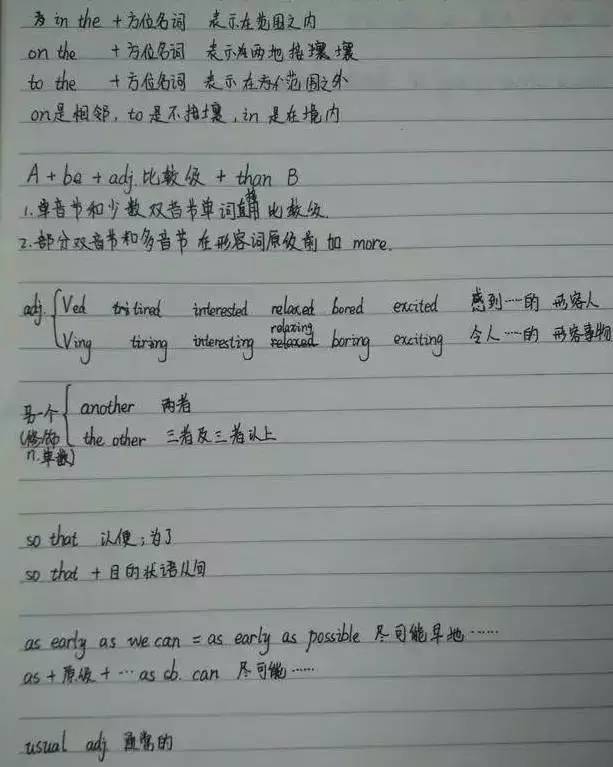 为 in the +方位名词 表示在范围之内
on the +方位名词 表示在两地接壤
to the +方位名词 表示在为个范围之外
on是相邻, to 是不接壤, in 是在境内
A + be + adj. 比较级 + than B
1.单音节和少数双音节单词直接用比较级.
2.部分双音节和多音节在形容词原级前加 more.
adj. Ved tired interested relaxed bored excited 感到……的 形容人
Ving tiring interesting relaxing boring exciting 令人……的 形容事物
另一个 another 两者
(修饰 n.单数) the other 三者及三者以上
so that 以便;为了
so that +目的状语从句
as early as we can = as early as possible 尽可能早地……
as +原级+…as sb. can 尽可能……
usual adj 通常的